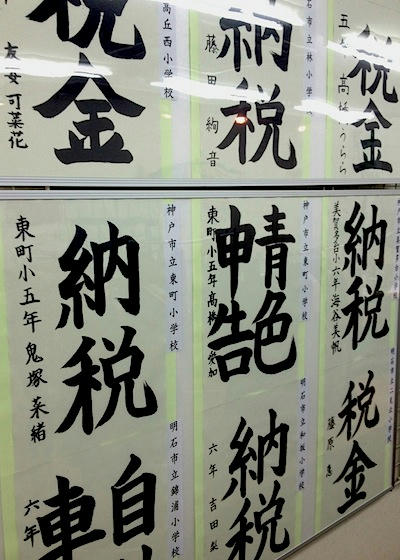 税金
高丘西小学校
友安可菜花
納税
石市立林小学校
藤田絢音
税金
納税
神戸市立東町小学校
東町小五年 鬼塚菜緒
青色
申告
神戸市立東町小学校
東町小五年 高橋愛加
納税
美賀多台小六年 海谷美帆
明石市立錦浦小学校
六年
納税
明石市立和坂小学校
六年 吉田梨
税金
藤原